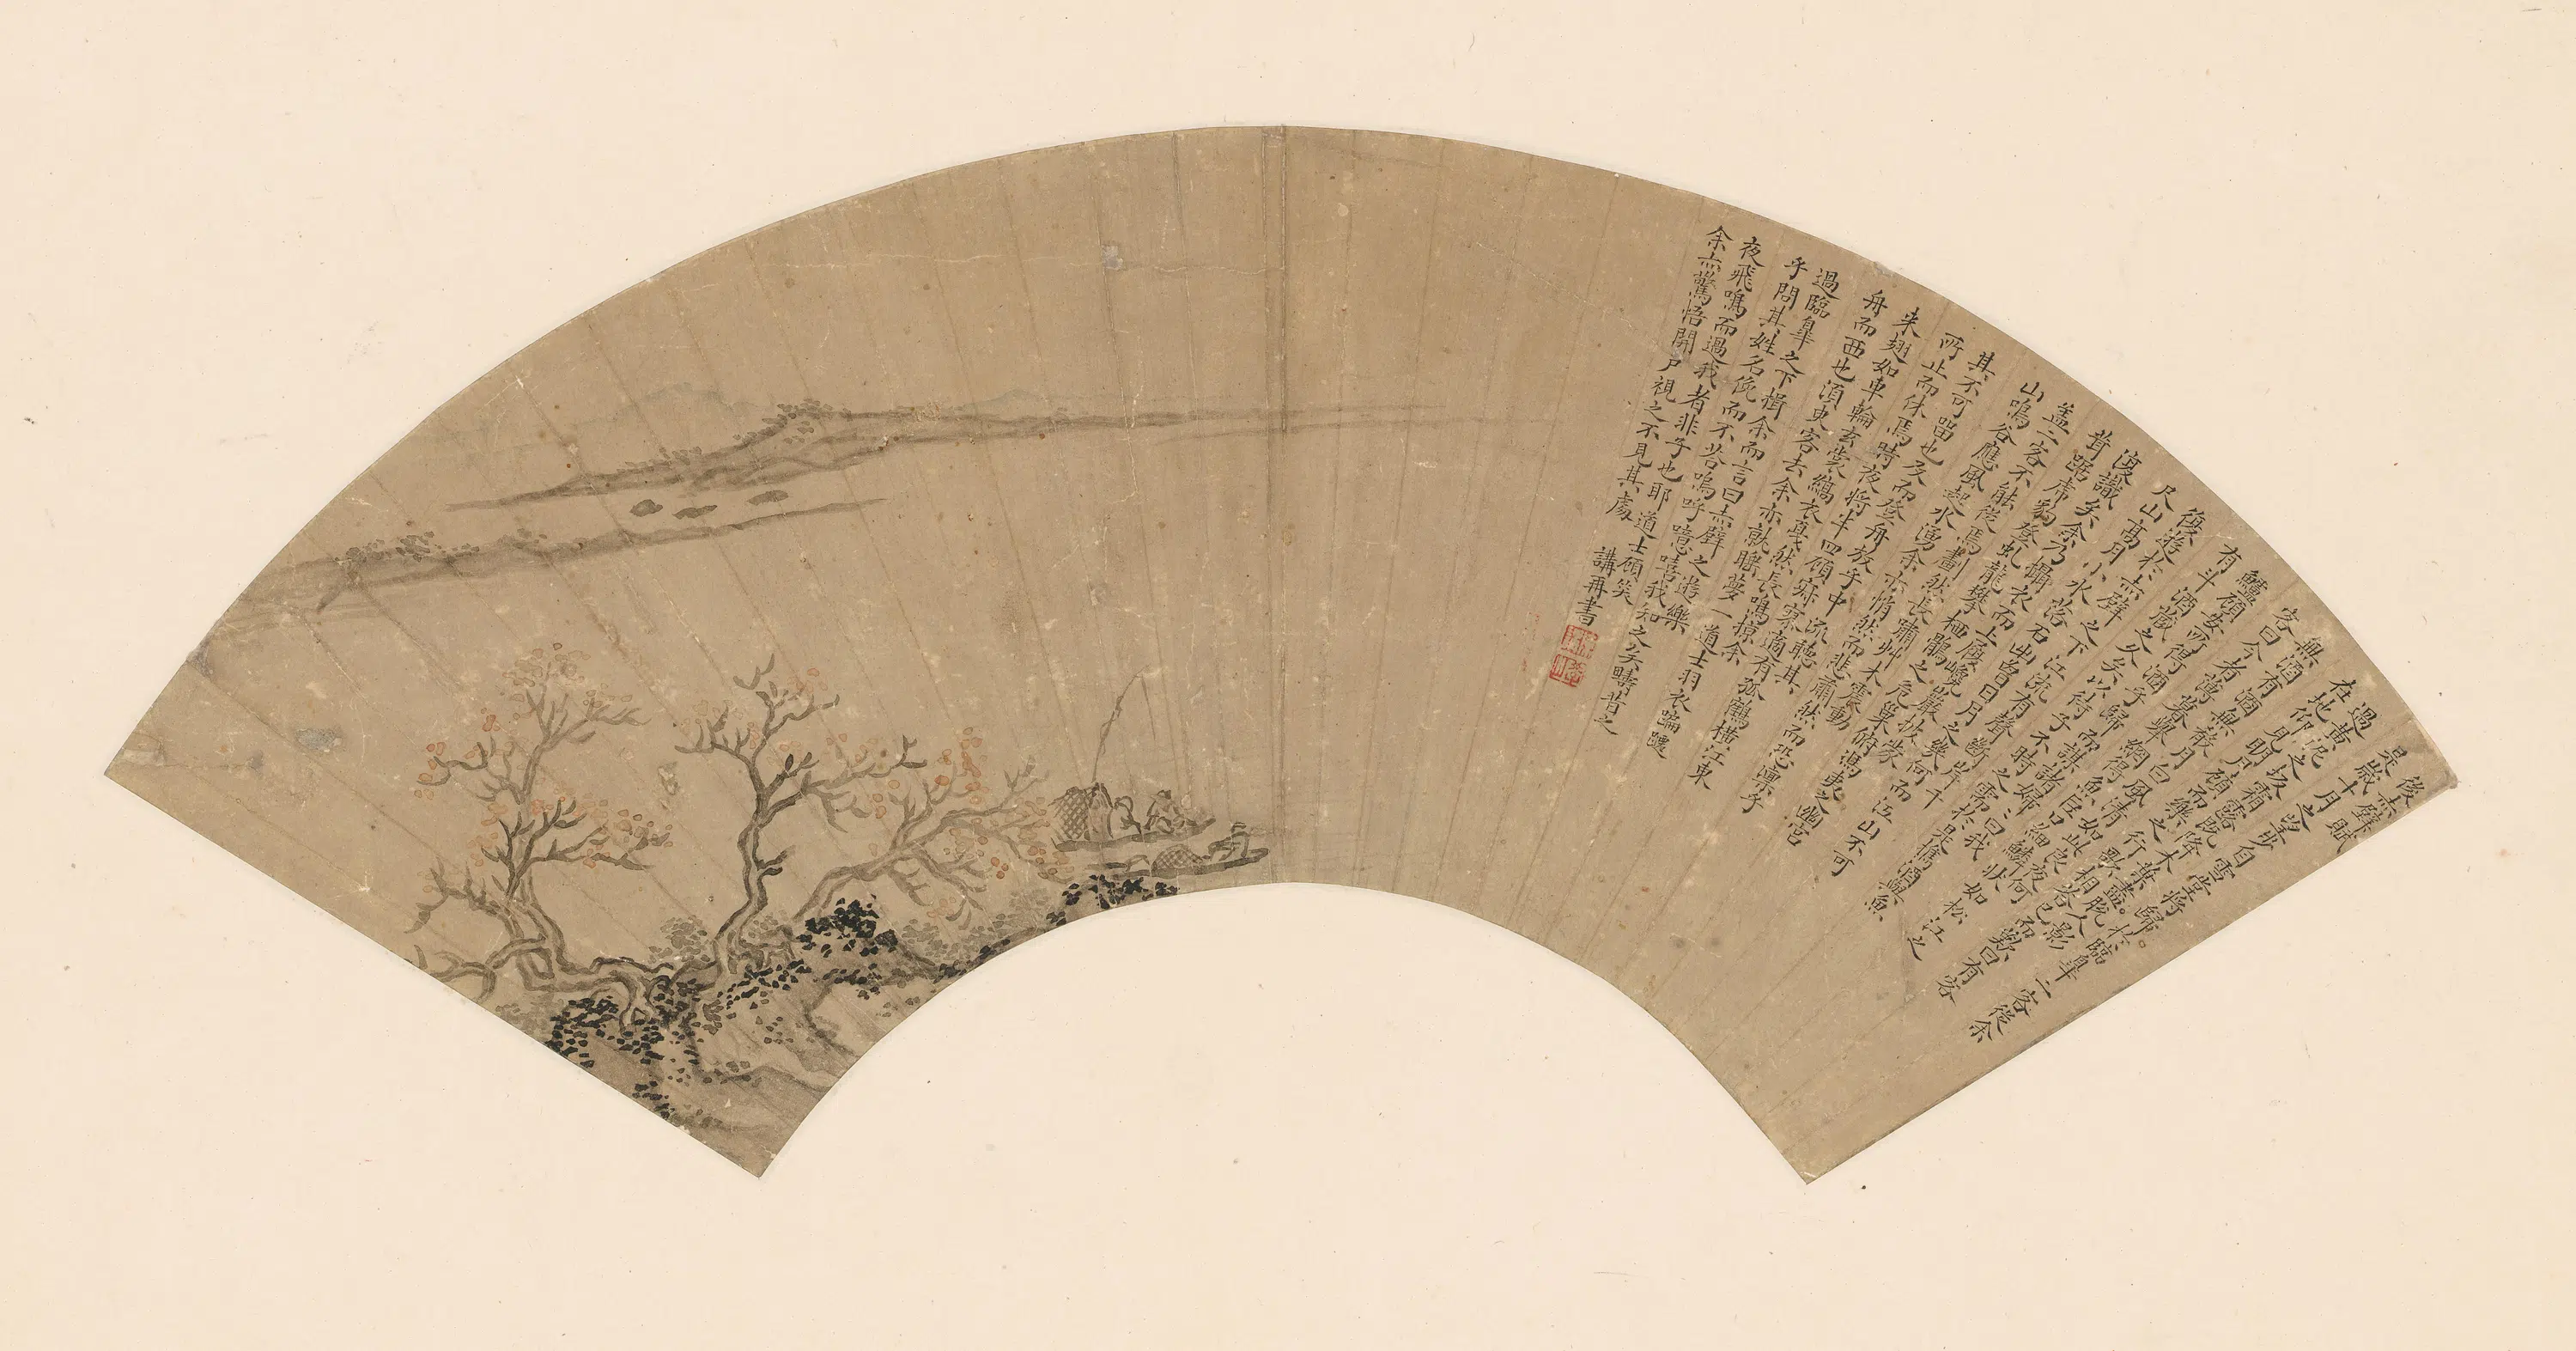 後赤壁賦
是歲十月之望步自雪堂將歸於臨皋二客從余
過黃泥之坂霜露既降木葉盡脫人影
在地仰見明月顧而樂之行歌相答已而歎曰有客
無酒有酒無殽月白風清如此良夜何
客曰今者薄暮舉網得魚巨口細鱗狀如松江之
鱸顧安所得酒乎歸而謀諸婦〻曰我
有斗酒藏之久矣以待子不時之需於是攜酒與魚
復遊於赤壁之下江流有聲斷岸千
尺山高月小水落石出曾日月之幾何而江山不可
復識矣余乃攝衣而上履巉巖披蒙
茸踞虎豹登虬龍攀栖鶻之危巢俯馮夷之幽宮
蓋二客不能從焉劃然長嘯艸木震動
山鳴谷應風起水湧余亦悄然而悲肅然而恐凜乎
其不可留也反而登舟放乎中流聽其
所止而休焉時夜將半四顧寂寥適有孤鶴橫江東
來翅如車輪玄裳縞衣戛然長鳴掠余
舟而西也須臾客去余亦就睡夢一道士羽衣蹁躚
過臨皋之下揖余而言曰赤壁之遊樂
乎問其姓名俛而不答嗚呼噫嘻我知之矣疇昔之
夜飛鳴而過我者非子也耶道士顧笑
余亦驚悟開戶視之不見其處 講再書